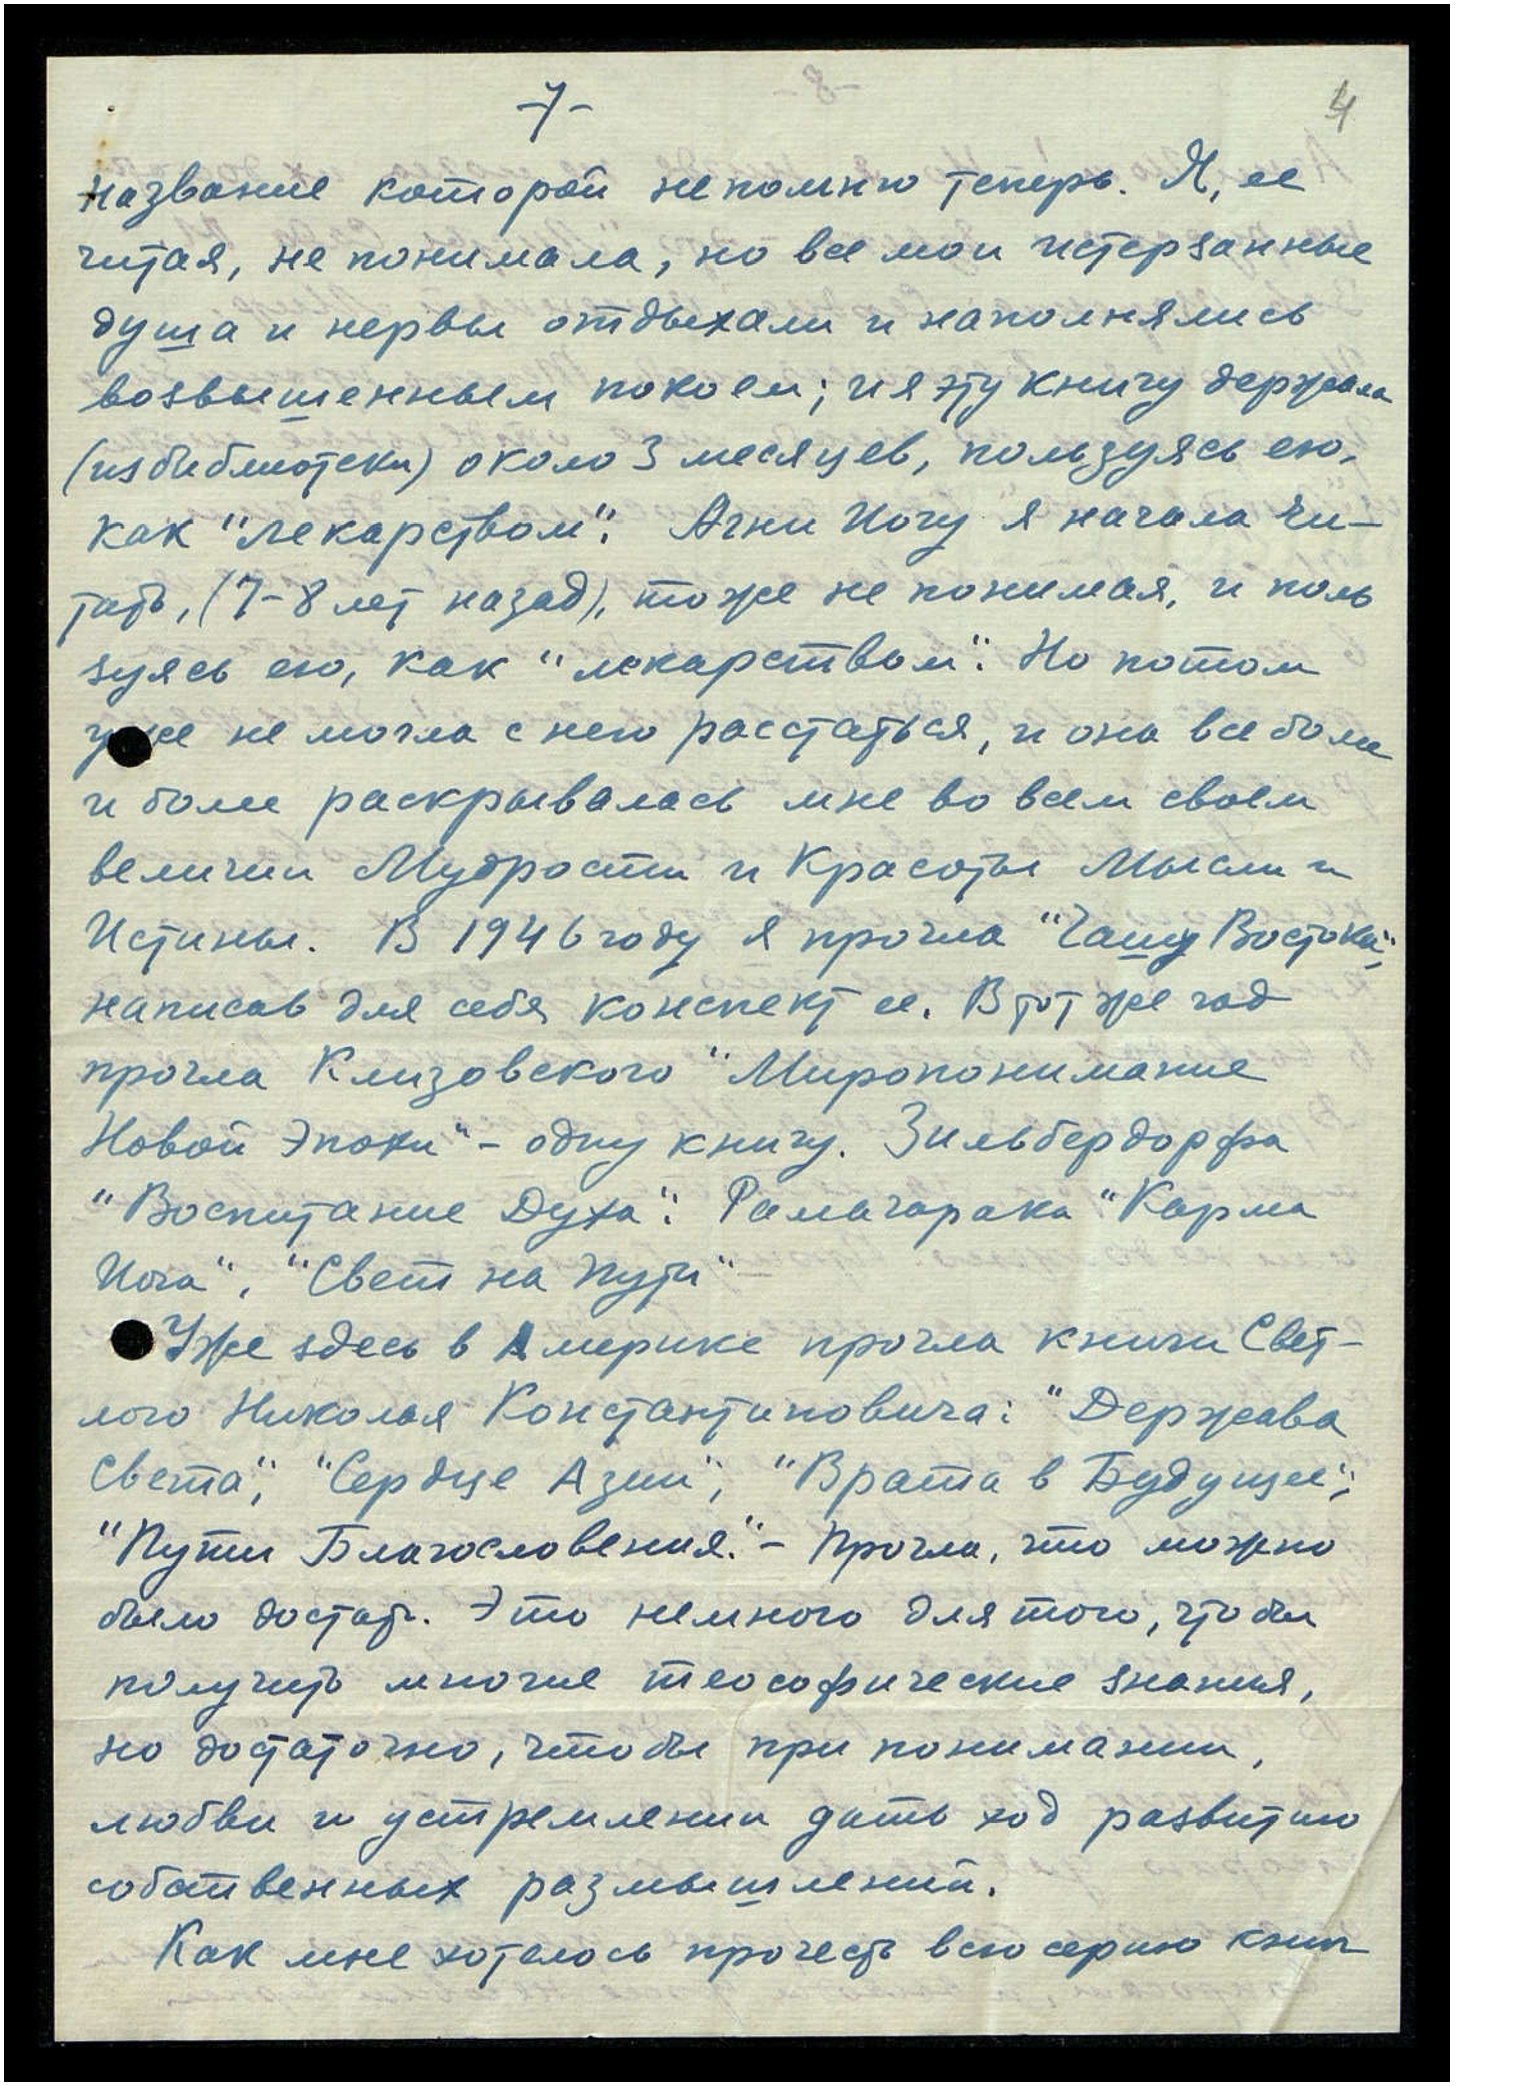 -7-
4
название которой не помню теперь. Я, ее
читая, не понимала, но все мои истерзанные
душа и нервы отдыхали и наполнялись
возвышенным покоем; и я эту книгу держала
(из библиотеки) около 3 месяцев, пользуясь ею,
как "лекарством". Агни Йогу я начала чи-
тать, (7-8 лет назад), тоже не понимая, и поль
зуясь ею, как "лекарством". Но потом
уже не могла с нею расстаться, и она все боле
и боле раскрывалась мне во всем своем
величии Мудрости и Красоты Мысли и
Истины. В 1946 году я прочла "Чашу Востока",
написав для себя конспект ее. В тот же год
прочла Клизовского "Миропонимание
Новой Эпохи" - одну книгу. Зильбердорфа
"Воспитание Духа". Рамачарака "Карма
Йога", "Свет на Пути"
Уже здесь в Америке прочла книги Свет-
лого Николая Константиновича: "Держава
Света", "Сердце Азии", "Врата в Будущее",
"Пути Благословения." - Прочла, что можно
было достать. Это немного для того, чтобы
получить многие теософические знания,
но достаточно, чтобы при понимании,
любви и устремлении дать ход развитию
собственных размышлений.
Как мне хотелось прочесть всю серию книг